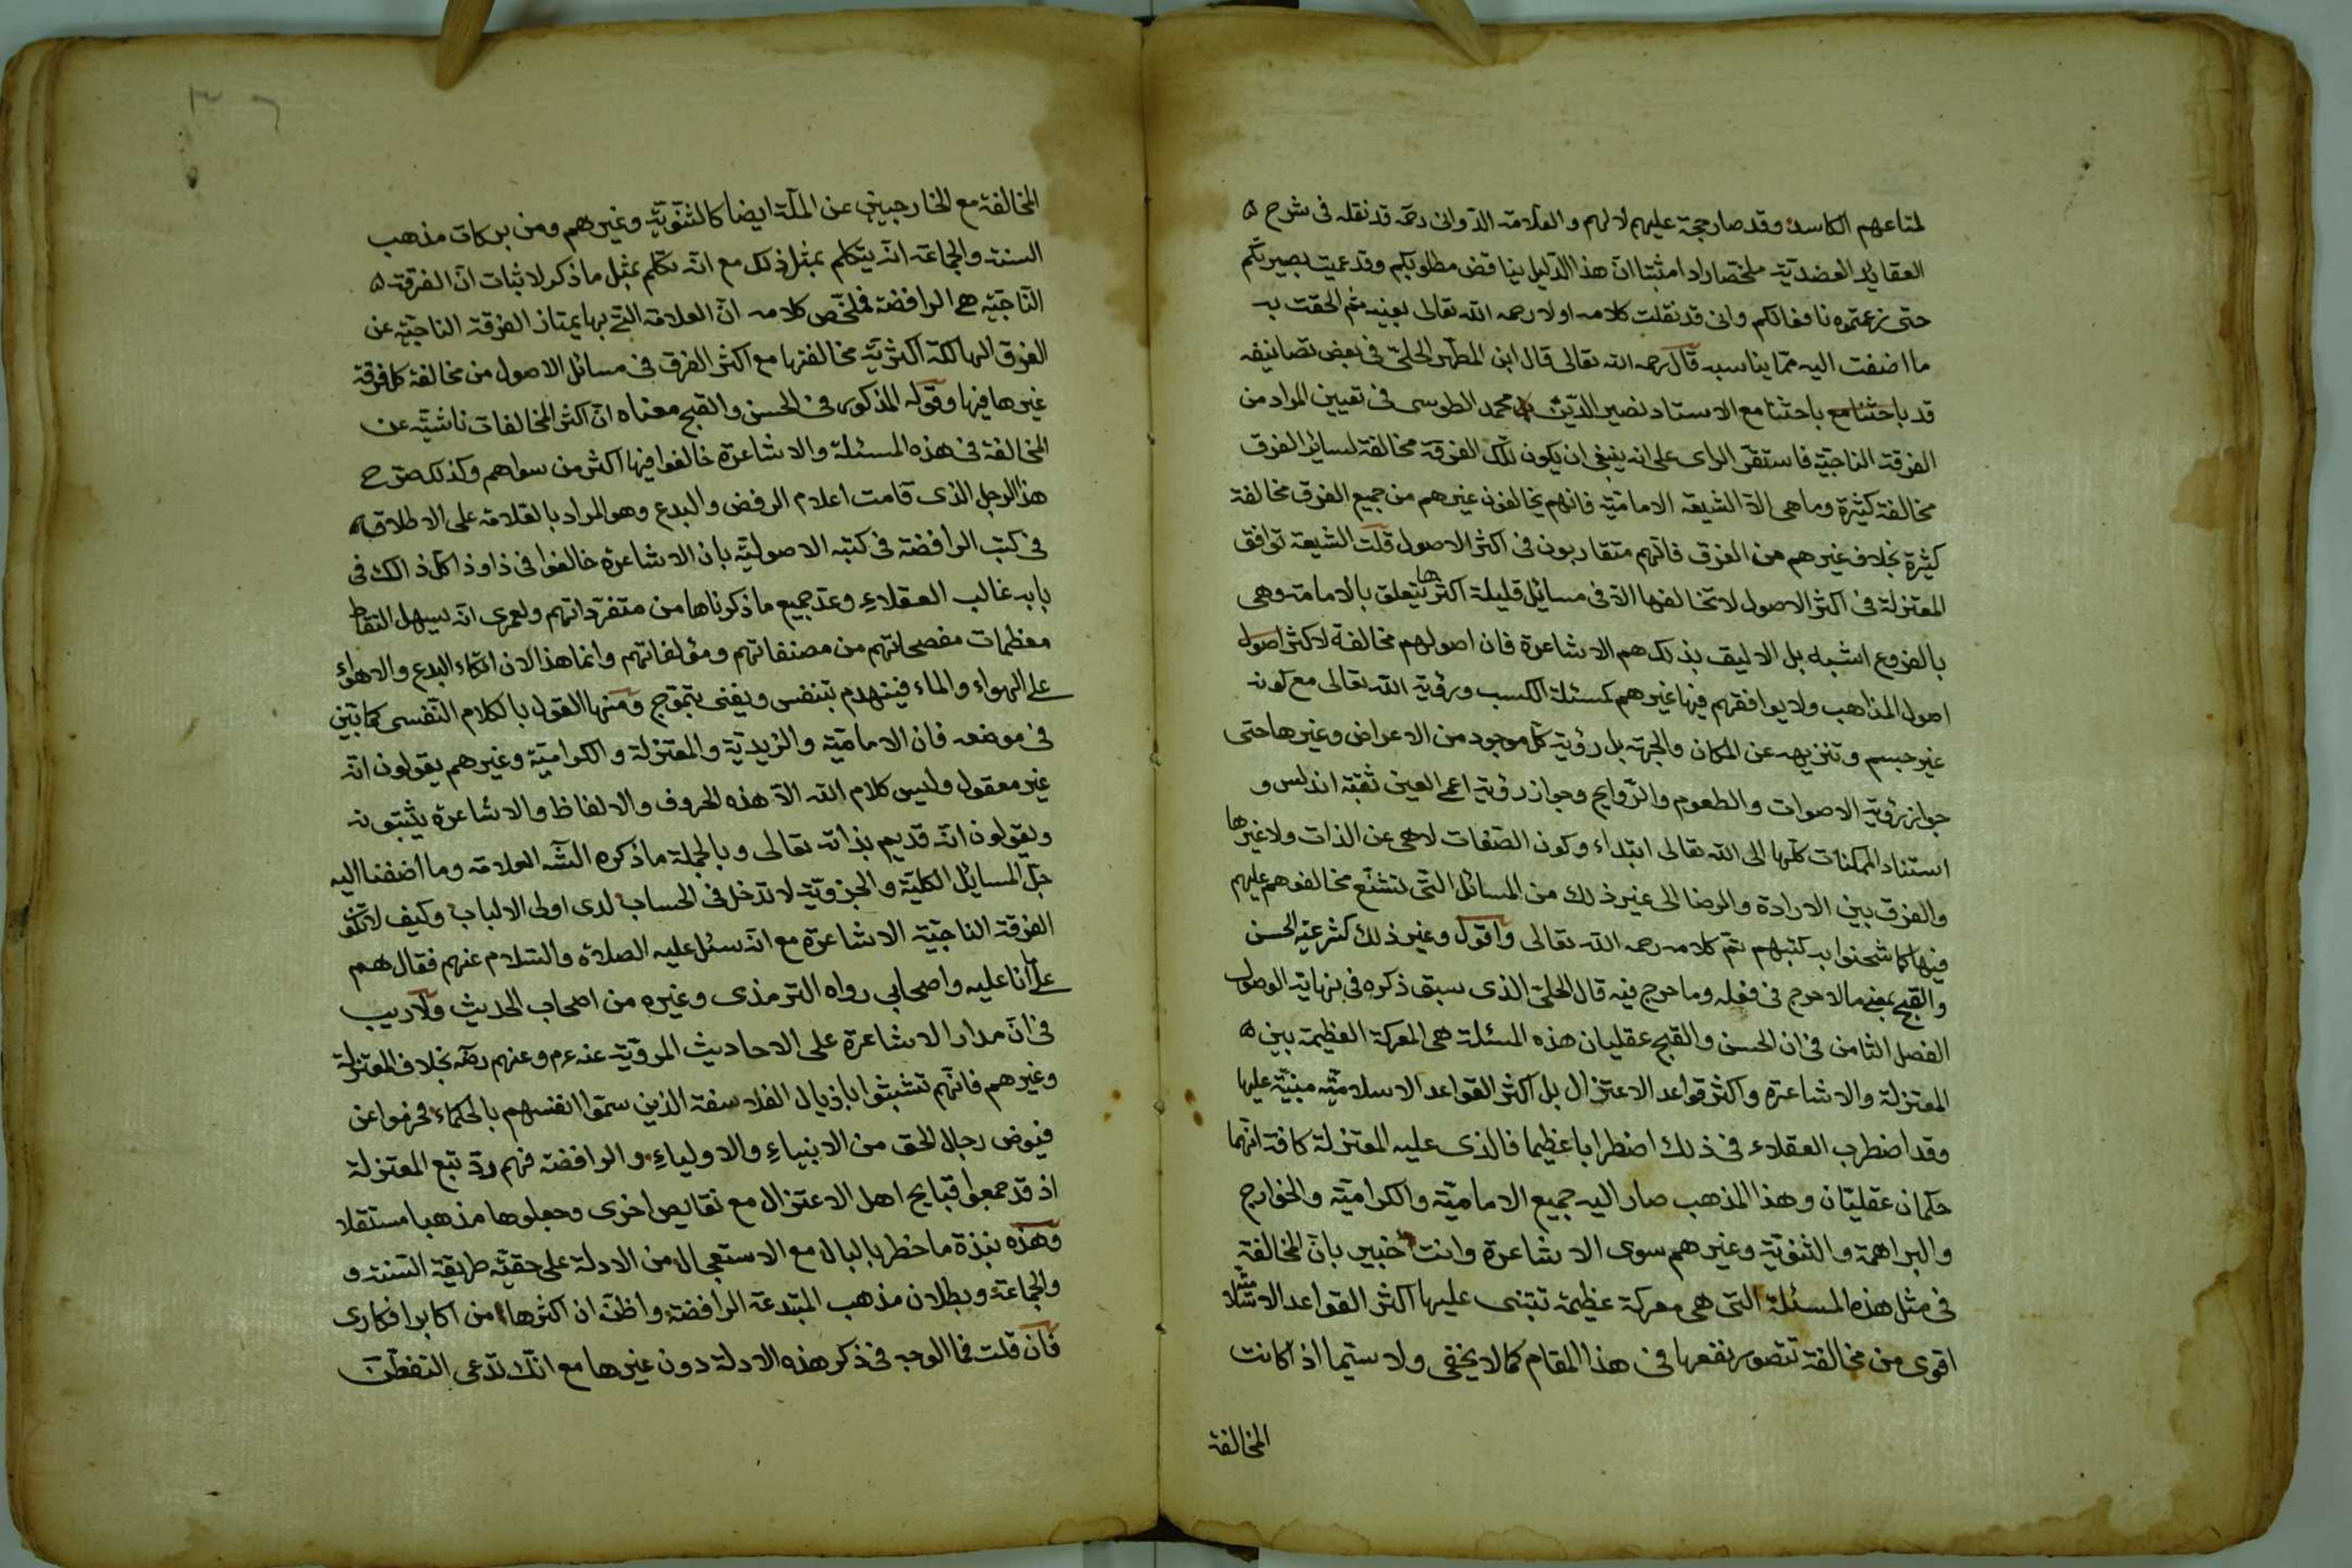 لمتاعهم الكاسد وقد صار حجة عليهم لا لهم والعلامة الدوانى رحمه قد نقله فى شرح
العقايد العضدية ملخصا رادا مثبتا ان هذا الدليل يناقض مطلوبكم وقد عميت بصيرتكم
حتى زعتموه نافعا لكم وانى قد نقلت كلامه اولا رحمه الله تعالى بعينه ثم الحقت به
ما اضفت اليه مما يناسبه قال رحمه الله تعالى قال ابن المطهر الحلى فى بعض تصانيفه
قد باحثنا مع باحثنا مع الاستاد نصير الدين محمد الطوسى فى تعيين المراد من
الفرقة الناجية فاستقر الراى على انه ينبغى ان يكون تلك الفرقة مخالفة لسائر الفرق
مخالفة كثيرة وما هى الا الشيعة الامامية فانهم يخالفون غيرهم من جميع الفرق مخالفة
كثيرة بخلاف غيرهم من الفرق فانهم متقاربون فى اكثر الاصول قلت الشيعة توافق
المعتزلة فى اكثر الاصول لا تخالفها الا فى مسائل قليلة اكثرها يتعلق بالامامة وهى
بالفروع اشبه بل الاليق بذلك هم الاشاعرة فان اصولهم مخالفة لاكثر اصول
اصول المذاهب ولا يوافقهم فيها غيرهم كمسئلة الكسب ورؤية الله تعالى مع كونه
غير جسم وتنزيهه عن المكان والجهة بل رؤية كل موجود من الاعراض وغيرها حتى
جواز رؤية الاصوات والطعوم والروايح وجواز رؤية اعمى العين ثقبة اندلس و
استناد الممكنات كلها الى الله تعالى ابتداء وكون الصفات لا هى عن الذات ولا غيرها
والفرق بين الارادة والرضا الى غير ذلك من المسائل التى تشنع مخالفوهم عليهم
فيها كما شحنوا به كتبهم تم كلامه رحمه الله تعالى واقول وغير ذلك كشرعية الحسن
والقبح بمعنى ما لا حرج فى فعله وما حرج فيه قال الحلى الذى سبق ذكره فى نهاية الوصول
الفصل الثامن فى ان الحسن والقبح عقليان هذه المسئلة هى المعركة العظيمة بين
المعتزلة والاشاعرة واكثر قواعد الاعتزال بل اكثر القواعد الاسلامية مبنية عليها
وقد اضطرب العقلاء فى ذلك اضطرابا عظيما فالذى عليه المعتزلة كافة انهما
حكمان عقليان وهذا المذهب صار اليه جميع الامامية والكرامية والخوارج
والبراهمة والثنوية وغيرهم سوى الاشاعرة وانت خبير بان المخالفة
فى مثل هذه المسئلة التى هى معركة عظيمة تبتنى عليها اكثر القواعد
اقوى من مخالفة تتصور نفعها فى هذا المقام كما لا يخفى ولا سيما اذا كانت
المخالفة
المخالفة مع الخارجيين عن الملة ايضا كالثنوية وغيرهم ومن بركات مذهب
السنة والجماعة انه يتكلم بمثل ذلك مع انه تكلم بمثل ما ذكر لاثبات ان الفرقة
الناجية هى الرافضة فملخص كلامه ان العلامة التى بها يمتاز الفرقة الناجية عن
الفرق الهالكة اكثرية مخالفتها مع اكثر الفرق فى مسائل الاصول من مخالفة كل فرقة
غيرها فيها وقوله المذكور فى الحسن والقبح معناه ان اكثر المخالفات ناشية عن
المخالفة فى هذه المسئلة والاشاعرة خالفوا فيها اكثر من سواهم وكذلك صرح
هذا الرجل الذى قامت اعلام الرفض والبدع وهو المراد بالعلامة على الاطلاق
فى كتب الرافضة فى كتبه الاصولية بان الاشاعرة خالفوا فى ذا وذا كل ذالك فى
بابه غالب العقلاء وعد جميع ما ذكرناها من متفرداتهم ولعمرى انه يسهل التقاط
معظمات مفصحاتهم من مصنفاتهم ومؤلفاتهم وانما هذا لان اتكاء البدع والاهواء
على الهواء والماء فينهدم بتنفس ويفنى بتموج ومنها القول بالكلام النفسى كما تبين
فى موضعه فان الامامية والزيدية والمعتزلة والكرامية وغيرهم يقولون انه
غير معقول وليس كلام الله الا هذه الحروف والالفاظ والاشاعرة يثبتونه
ويقولون انه قديم بذاته تعالى وبالجملة ما ذكره الشه العلامة وما اضفنا اليه
جل المسايل الكلية والجزوية لا تدخل فى الحساب لدى اولى الالباب وكيف لا تكون
الفرقة الناجية الاشاعرة مع انه سئل عليه الصلاة والسلام عنهم فقال هم
على ما انا عليه واصحابي رواه الترمذى وغيره من اصحاب الحديث ولا ريب
فى ان مدار الاشاعرة على الاحاديث المروية عنه عم وعنهم رضه بخلاف المعتزلة
وغيرهم فانهم تشبثوا باذيال الفلاسفة الذين سموا انفسهم بالحكماء فحرموا عن
فيوض رجال الحق من الانبياء والاولياء والرافضة فهم ردّ تبع المعتزلة
اذ قد جمعوا قبايح اهل الاعتزال مع نقايص اخرى وجعلوها مذهبا مستقلا
وهذه نبذة ما خطر بالبال مع الاستعجال من الادلة على حقية طريقة السنة و
والجماعة وبطلان مذهب المبتدعة الرافضة واظن ان اكثرها من اكابر افكارى
فان قلت فما الوجه فى ذكر هذه الادلة دون غيرها مع انك تدعى التفطن